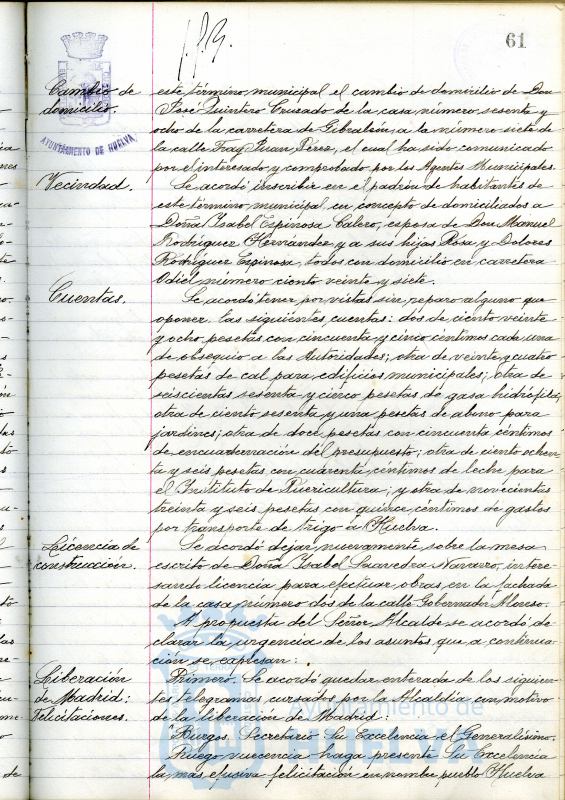 61
Cambio de
domicilio.
AYUNTAMIENTO DE HUELVA
este término municipal el cambio de domicilio de Don
José Quintero Crusado de la casa número sesenta y
ocho de la carretera de Gibraleón, a la número siete de
la calle Fray Juan Pérez, el cual ha sido comunicado
por el interesado y comprobado por los Agentes Municipales.
Vecindad.
Se acordó inscribir en el padrón de habitantes de
este término municipal, en concepto de domiciliados a
Doña Isabel Espinosa Calero, esposa de Don Manuel
Rodríguez Hernández y a sus hijas Rosa y Dolores
Rodríguez Espinosa, todos con domicilio en carretera
Odiel número ciento veinte y siete.
Cuentas.
Se acordó tener por vistas sin reparo alguno que
oponer las siguientes cuentas: dos de ciento veinte
y ocho pesetas con cincuenta y cinco céntimos cada una
de obsequio a las Autoridades; otra de veinte y cuatro
pesetas de cal para edificios municipales; otra de
seiscientas sesenta y cinco pesetas de gasa hidrófila;
otra de ciento sesenta y una pesetas de abono para
jardines; otra de doce pesetas con cincuenta céntimos
de encuadernación del presupuesto; otra de ciento ochen
ta y seis pesetas con cuarenta céntimos de leche para
el Instituto de Puericultura; y otra de novecientas
treinta y seis pesetas con quince céntimos de gastos
por transporte de trigo a Huelva.
Licencia de
construcción.
Se acordó dejar nuevamente sobre la mesa
escrito de Doña Isabel Saavedra Navarro, intere
sando licencia para efectuar obras en la fachada
de la casa número dos de la calle Gobernador Alonso.
A propuesta del Señor Alcalde se acordó de
clarar la urgencia de los asuntos que a continua
ción se expresan:
Liberación
de Madrid:
felicitaciones.
Primero. Se acordó quedar enterada de los siguien
tes telegramas cursados por la Alcaldía con motivo
de la liberación de Madrid:
"Burgos. Secretario Su Excelencia el Generalísimo.
Ruego vuecencia haga presente Su Excelencia
la más efusiva felicitación en nombre pueblo Huelva
Ayuntamiento de
HUELVA